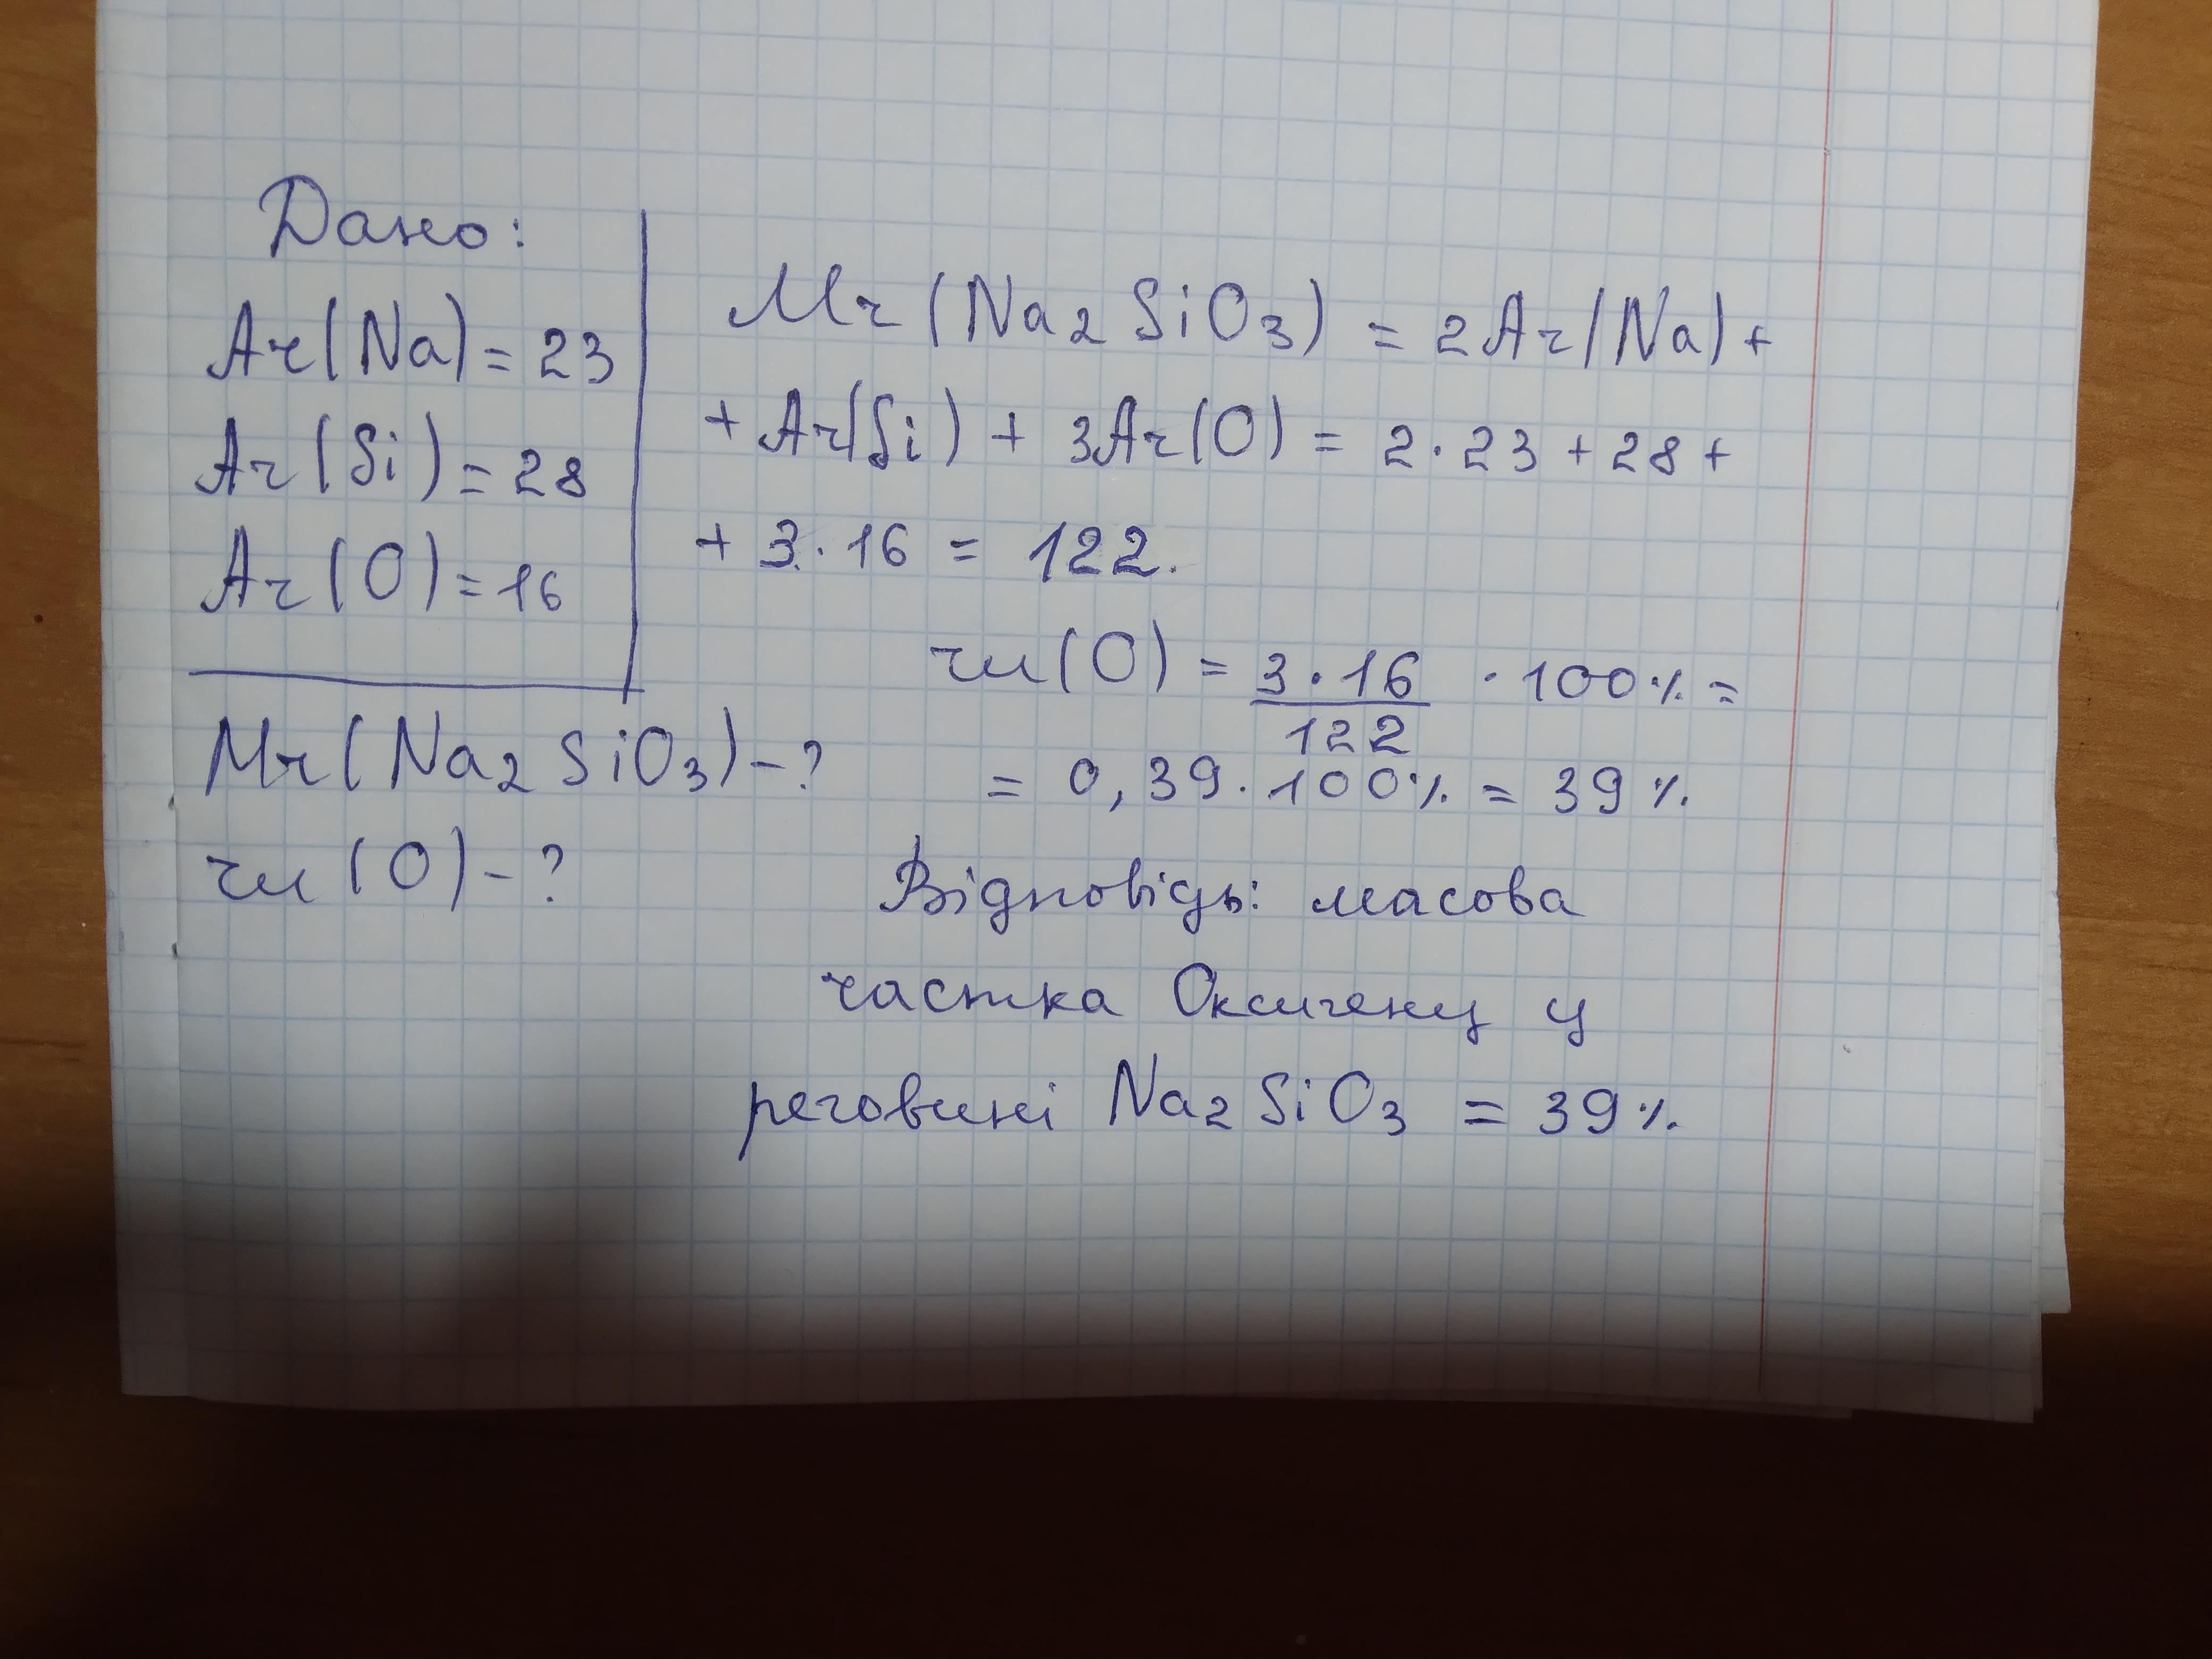 Дано:
Ar(Na) = 23
Ar(Si) = 28
Ar(O) = 16
Mr(Na₂SiO₃) - ?
w(O) - ?
Mr(Na₂SiO₃) = 2Ar(Na) +
+ Ar(Si) + 3Ar(O) = 2·23 + 28 +
+ 3·16 = 122.
w(O) = 3·16/122 · 100% =
= 0,39·100% = 39%
Відповідь: масова
частка Оксигену у
речовині Na₂SiO₃ = 39%